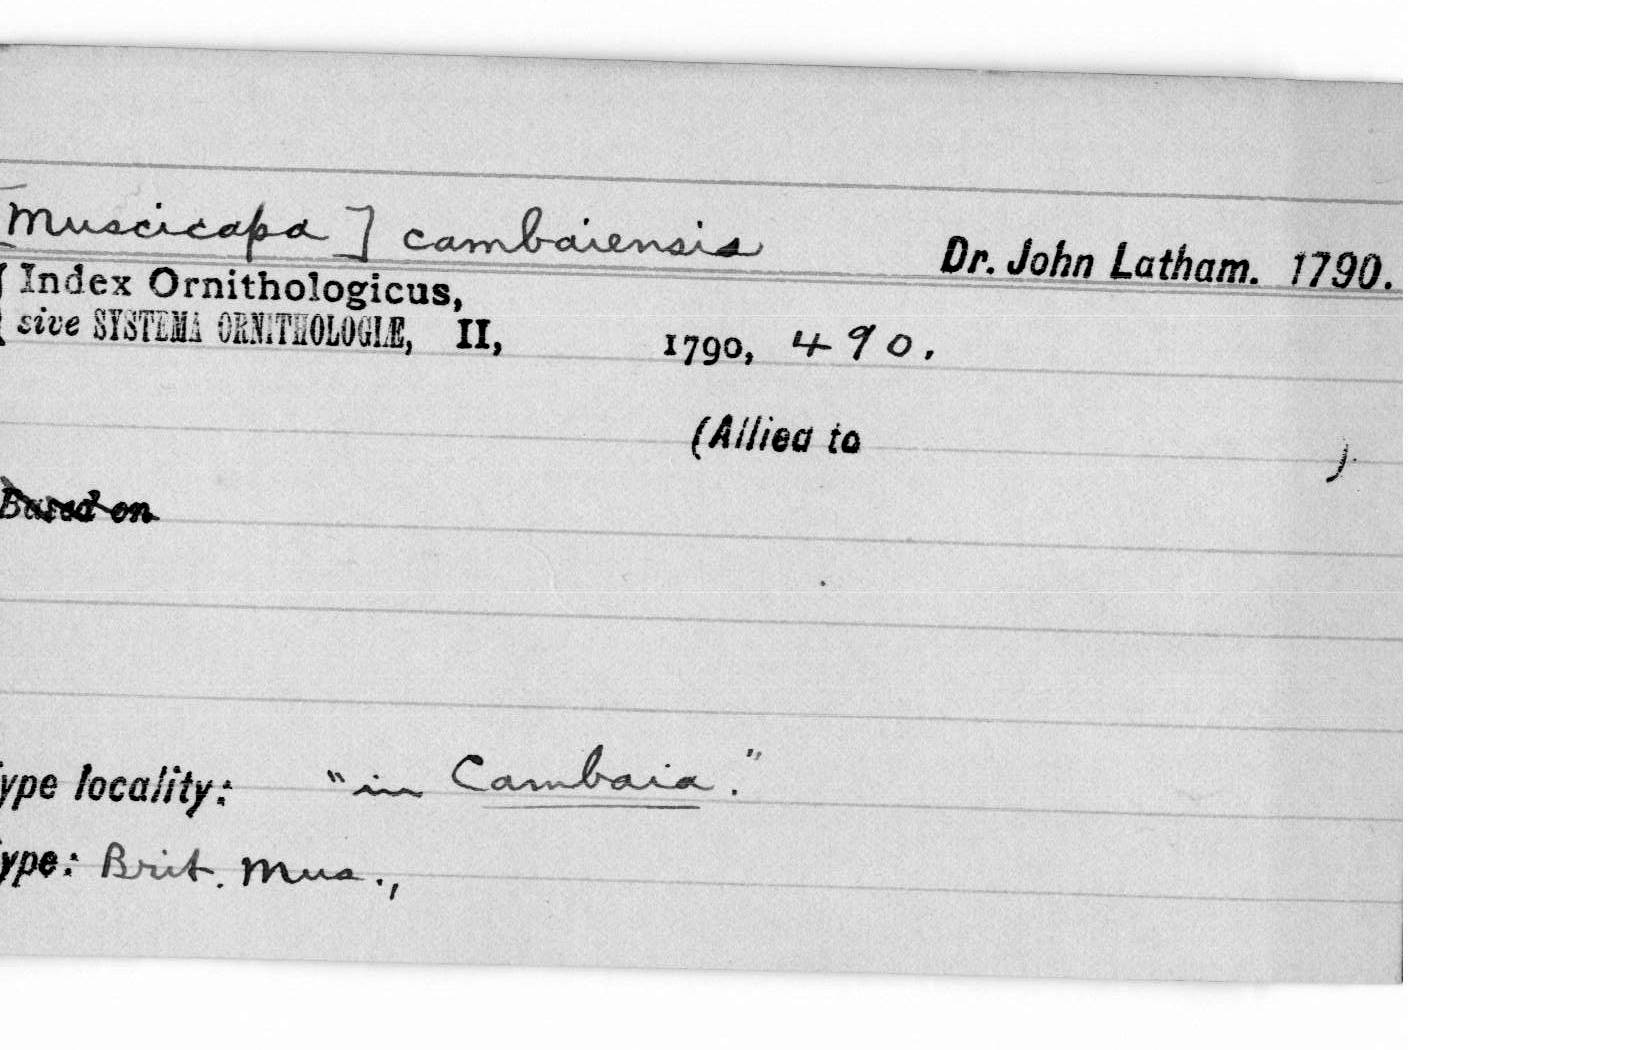 [Muscicapa] cambaiensis Dr. John Latham. 1790.
Index Ornithologicus,
sive SYSTEMA ORNITHOLOGIÆ, II, 1790, 490.
(Allied to )
Based on
ype locality: "in Cambaia."
ype: Brit. Mus.,